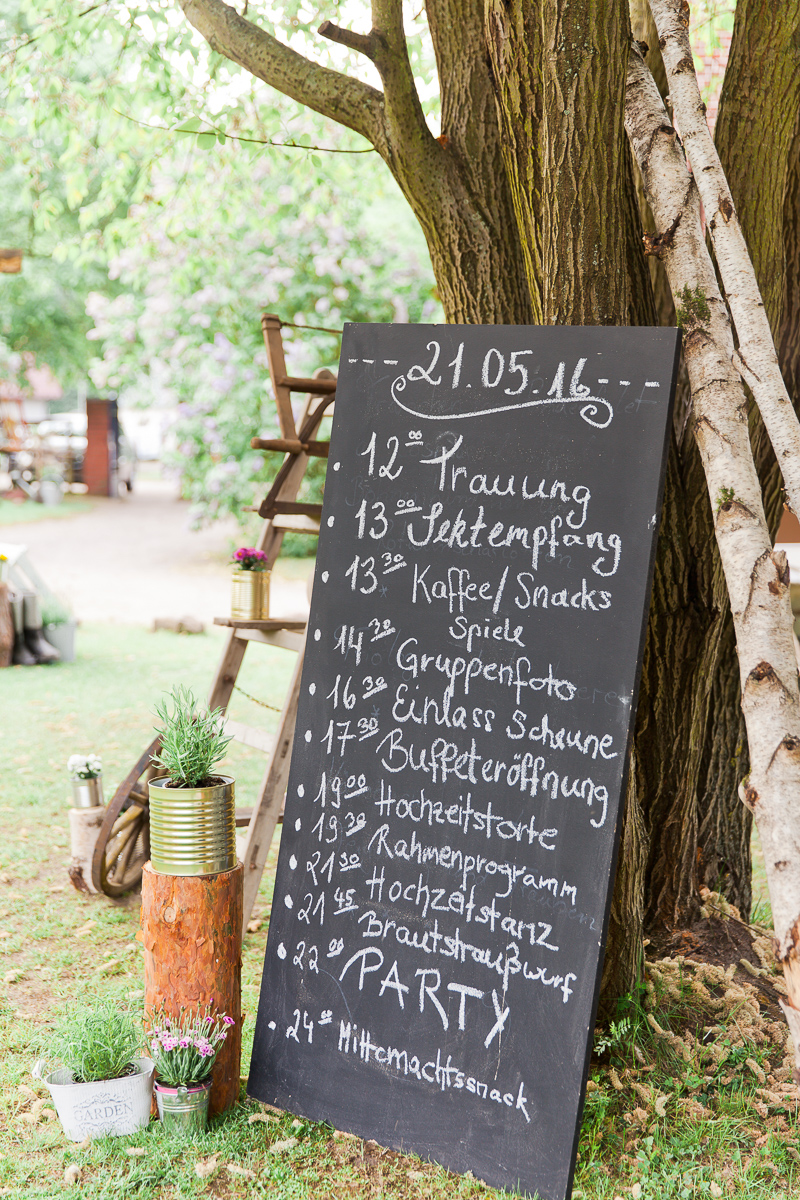 --- 21.05.16 ---
• 12⁰⁰ Trauung
• 13⁰⁰ Sektempfang
• 13³⁰ Kaffee/Snacks
Spiele
• 14³⁰ Gruppenfoto
• 16³⁰ Einlass Scheune
• 17³⁰ Buffeteröffnung
• 19⁰⁰ Hochzeitstorte
• 19³⁰ Rahmenprogramm
• 21³⁰ Hochzeitstanz
• 21⁴⁵ Brautstraußwurf
• 22⁰⁰ PARTY
• 24⁰⁰ Mitternachtssnack
GARDEN